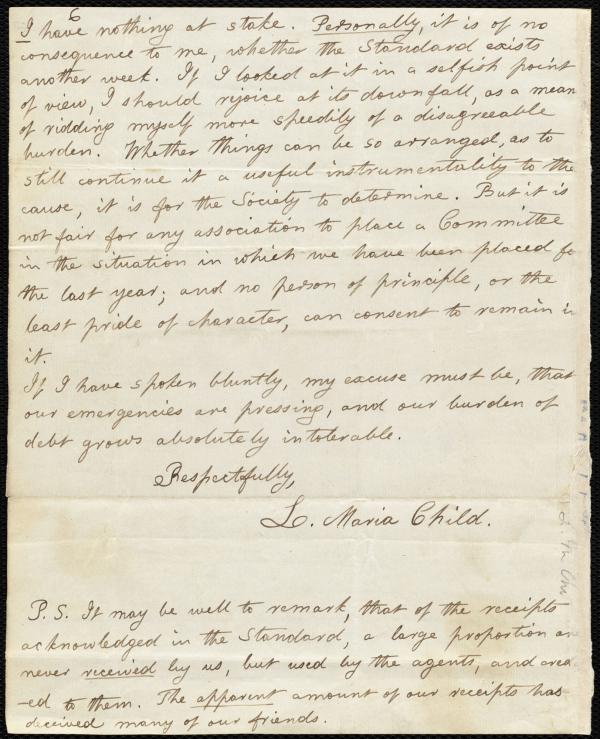 6
I have nothing at stake. Personally, it is of no
consequence to me, whether the Standard exists
another week. If I looked at it in a selfish point
of view, I should rejoice at its downfall, as a mean
of ridding myself more speedily of a disagreeable
burden. Whether things can be so arranged, as to
still continue it a useful instrumentality to the
cause, it is for the Society to determine. But it is
not fair for any association to place a Committee
in the situation in which we have been placed fo
the last year; and no person of principle, or the
least pride of character, can consent to remain i
it.
If I have spoken bluntly, my excuse must be, that
our emergencies are pressing, and our burden of
debt grows absolutely intolerable.
Respectfully,
L. Maria Child.
P.S. It may be well to remark, that of the receipts
acknowledged in the Standard, a large proportion a
never received by us, but used by the agents, and cred
-ed to them. The apparent amount of our receipts has
deceived many of our friends.